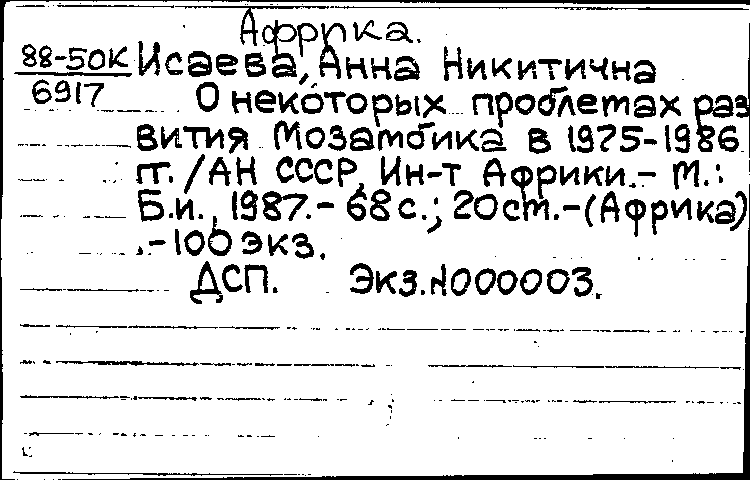 Африка.
88-50К Исаева, Анна Никитична
6917 О некоторых проблемах раз
вития Мозамбика в 1975-1986
гг. / АН СССР, Ин-т Африки.- М.:
Б.и., 1987.- 68 с.; 20 см.-(Африка)
.-100 экз.
ДСП. Экз.N000003.